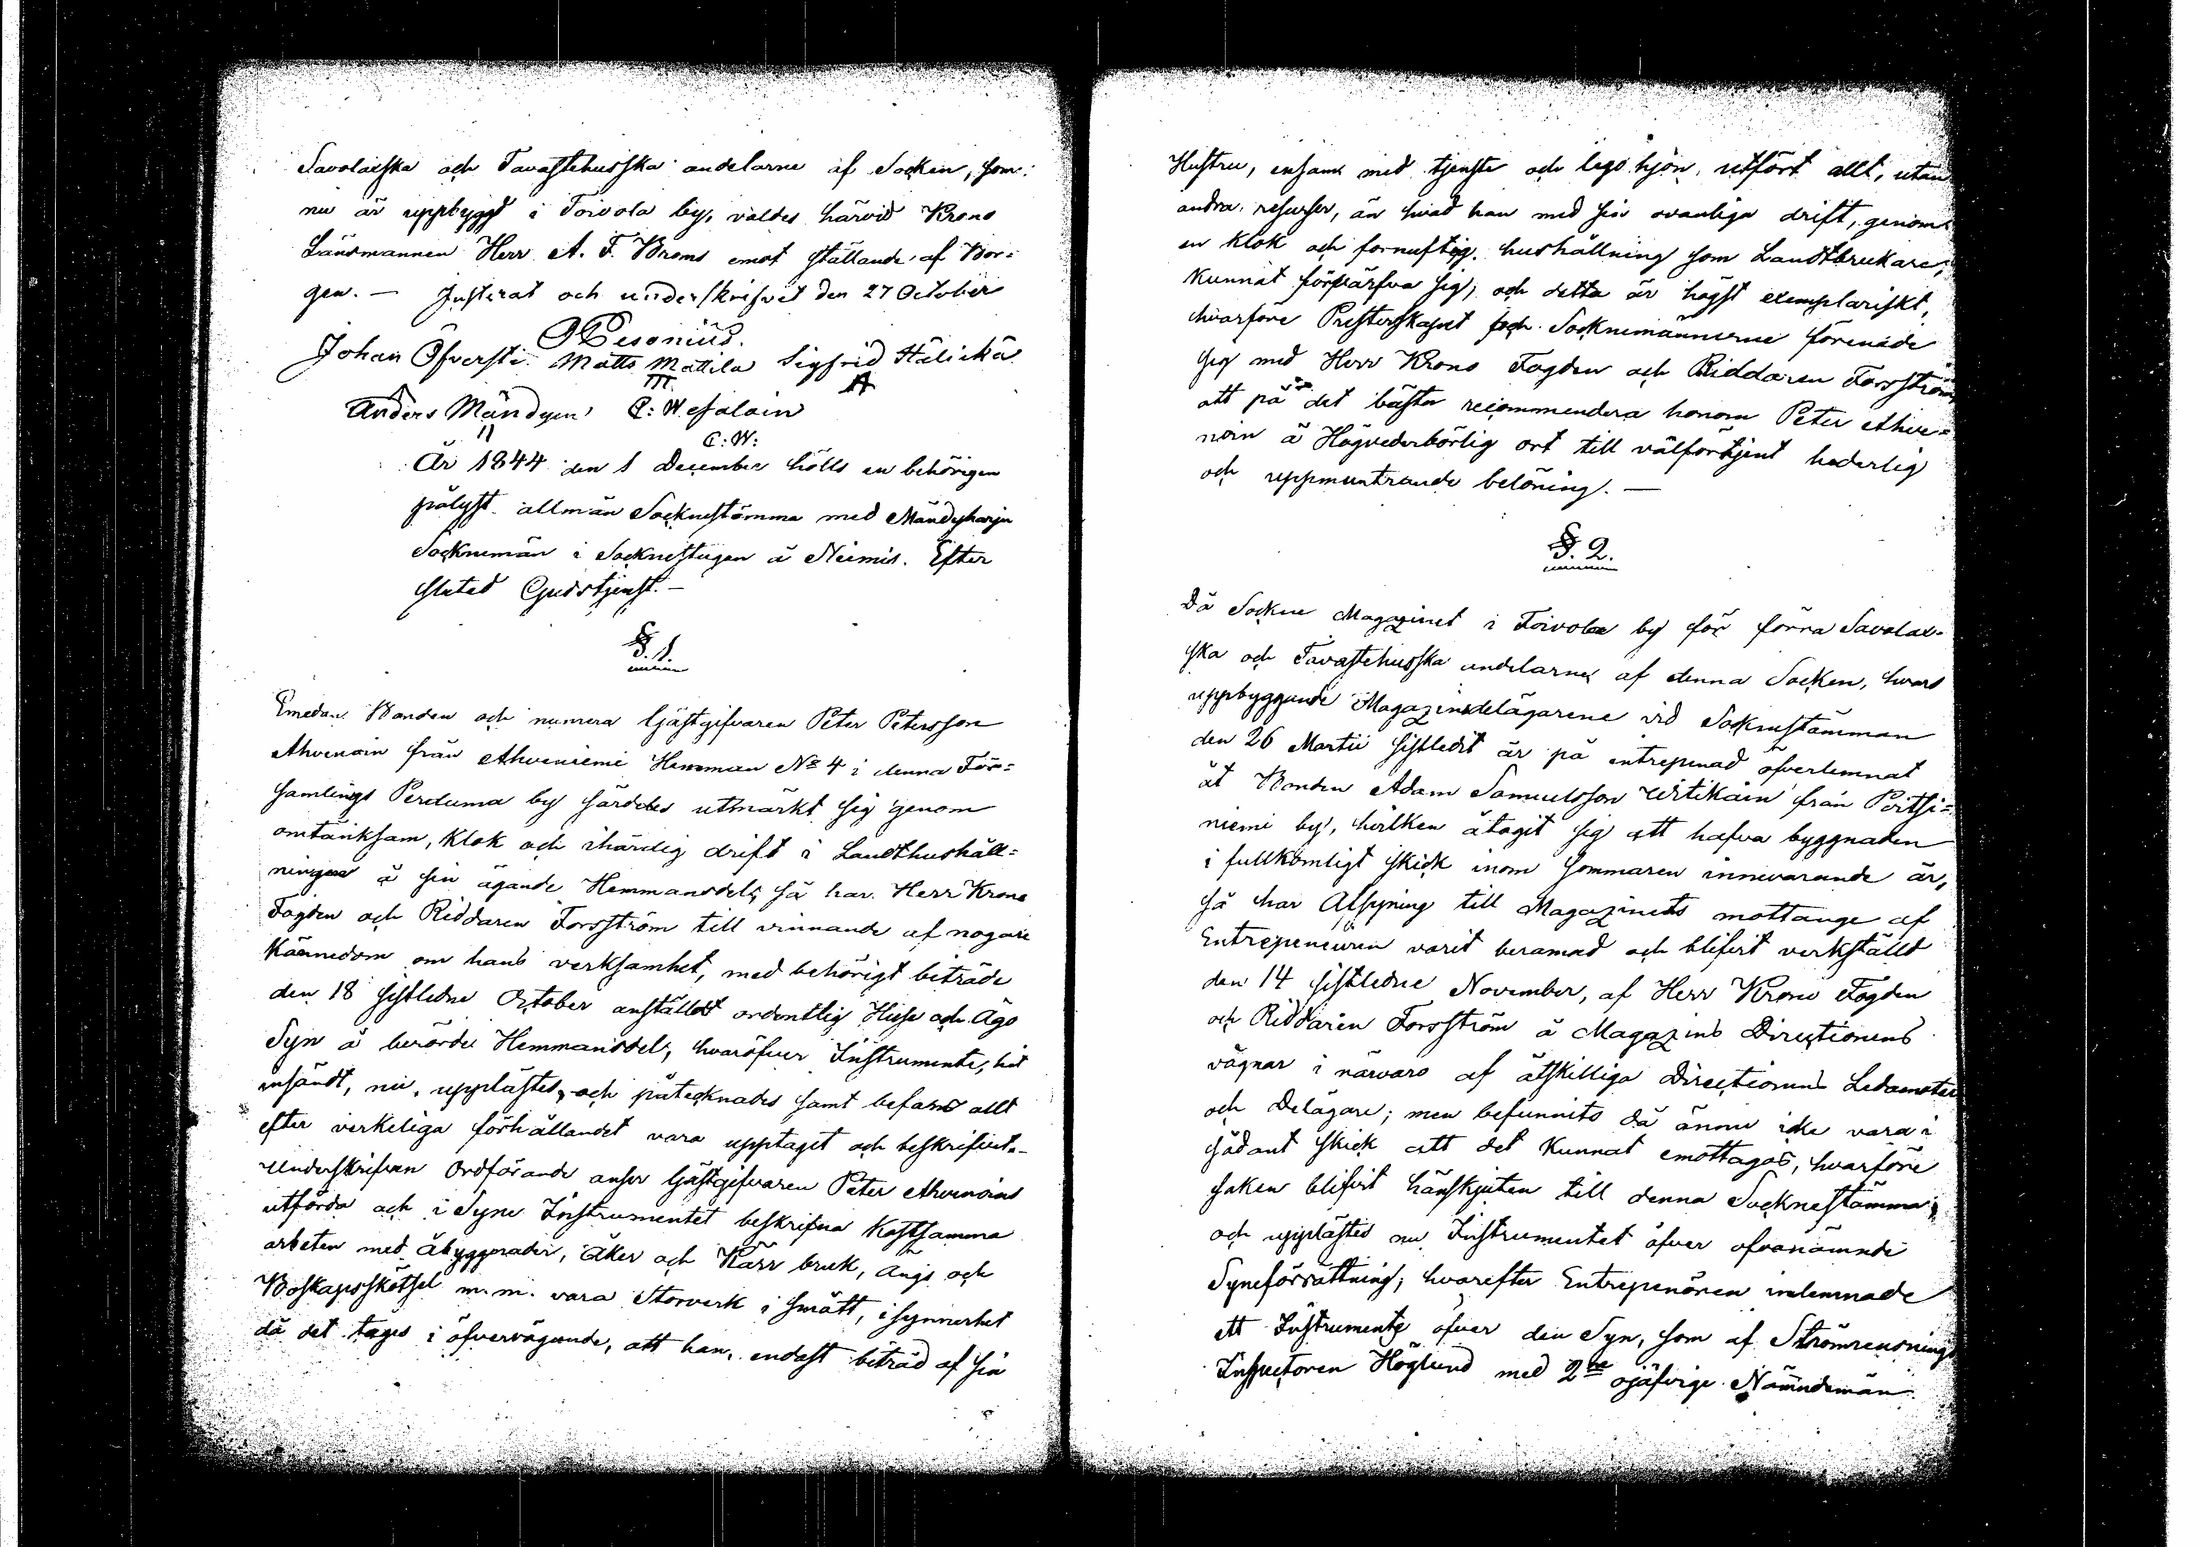 Savolaxska och Tavastehusska andelarne af Socken, som
nu är uppbyggd i Toivola by, valdes härvid Krono
Länsmannen Herr A. F. Broms emot ställande af Bor-
gen. — Justerat och underskrifvet den 27 October
OPesonius.
Johan Öfversti Matts Mattila Sigfrid Hälickä
Anders Mändynen C: Wesalain
C: W:
År 1844 den 1 December hölls en behörigen
pålyst allmän Socknestämma med Mändyharju
Socknemän i Socknestugan å Niemis. Efter
slutad Gudstjenst. —
§. 1.
Emedan Bonden och numera Gästgifvaren Peter Petersson
Ahvenain från Ahveniemi Hemman No 4 i denna För-
samlings Pertuma by särdeles utmärkt sig genom
omtänksam, klok och ihärdig drift i Landthushåll-
ningen å sin ägande Hemmansdel, så har Herr Krono
Fogden och Riddaren Forsström till vinnande af nogare
Kännedom om hans verksamhet, med behörigt biträde
den 18 sistledne October anställdt ordentlig Huse och Ägo
Syn å berörde Hemmansdel, hvaröfver Instrumente, hit
insändt, nu, upplästes, och påtecknades samt befans allt
efter verkeliga förhållandet vara upptaget och beskrifvit.
Underskrifven Ordförande anser Gästgifvaren Peter Ahvenains
utförda och i Syne Instrumentet beskrifna Kostsamma
arbeten med åbyggnader, åker och Kärr bruk, ängs och
Boskapsskötsel m. m. vara Storverk i smått, i synnerhet
då det tages i öfvervägande, att han, endast biträd af sin
Hustru, ensam med tjenste och lego hjon, utfört allt, utan
andra resurser, än hvad han med sin ovanliga drift, genom
en klok och fornuftig hushållning som Landtbrukare,
kunnat förvärfva sig, och detta är högst exemplariskt,
hvarföre Presterskapet och Socknemännerne förenade
sig med Herr Krono Fogden och Riddaren Forsström
att på det bästa recommendera honom Peter Ahve-
nain å Högvederbörlig ort till välförtjent hederlig
och uppmuntrande belöning. —
§. 2.
Då Sockne Magazinet i Toivola by för förra Savolax-
ska och Tavastehusska andelarne af denna Socken, hvars
uppbyggande Magazinsdelägarene vid Socknestämman
den 26 Martii sistledit år på entrepenad öfverlemnat
åt Bonden Adam Samuelsson Urtikain från Peitsi-
niemi by, hvilken åtagit sig att hafva byggnaden
i fullkomligt skick inom sommaren innevarande år,
så har Afsyning till Magazinets mottange af
Entrepeneuren varit beramad och blifvit verkställd
den 14 sistledne November, af Herr Krono Fogden
och Riddaren Forsström å Magazins Directionens
vägnar i närvaro af åtskilliga Directionens Ledamöter
och Delägare; men befunnits då ännu icke vara i
sådant skick att det kunnat emottagas, hvarföre
saken blifvit hänskjuten till denna Socknestämma;
och upplästes nu Instrumentet öfver ofvannämnde
Syneförrättning, hvarefter Entrepenören inlemnade
ett Instrumente öfver den Syn, som af Strömrensnings
Inspectoren Höglund med 2ne ojäfvige Nämndemän